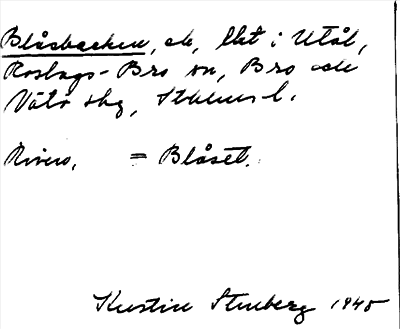 Blåsbacken, ek, lht i Utål,
Roslags-Bro sn, Bro och
Vätö skg, Sthlms l.
Riven. = Blåset.
Kerstin Stenberg 1945